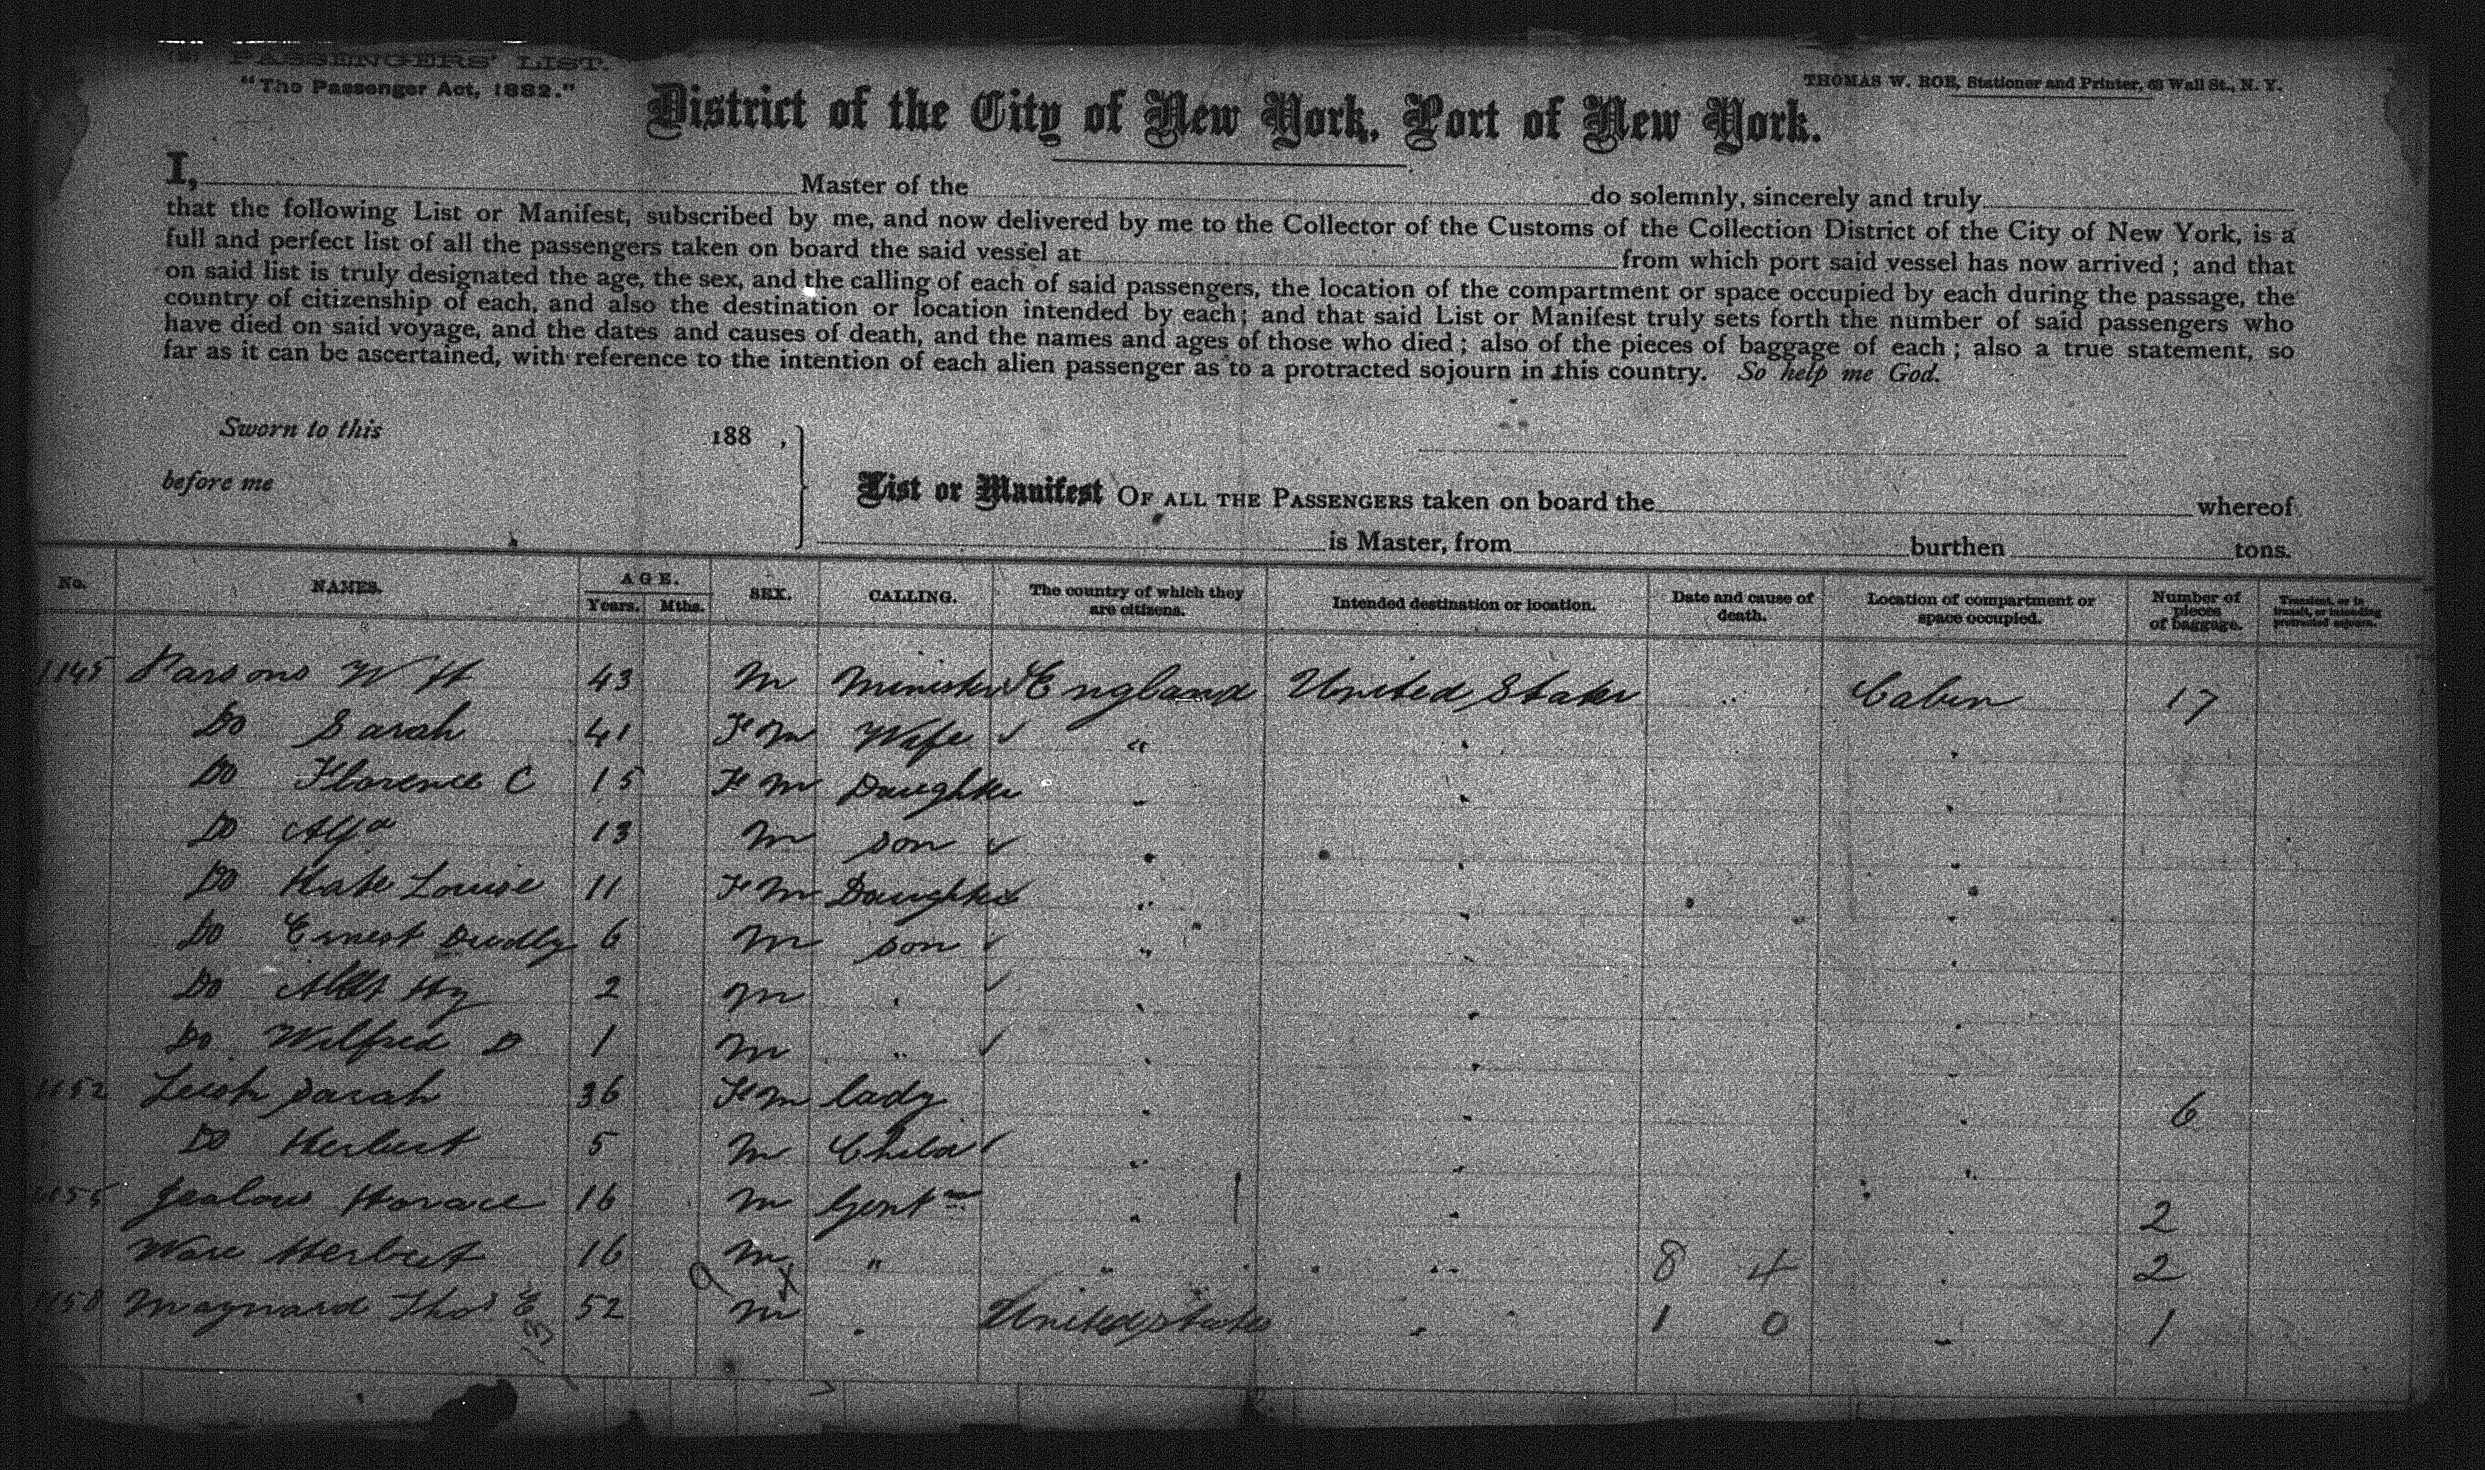 PASSENGERS' LIST.
"The Passenger Act, 1882."
THOMAS W. ROE, Stationer and Printer, Wall St., N. Y.
District of the City of New York, Port of New York.
I, Master of the do solemnly, sincerely and truly
that the following List or Manifest, subscribed by me, and now delivered by me to the Collector of the Customs of the Collection District of the City of New York, is a
full and perfect list of all the passengers taken on board the said vessel at from which port said vessel has now arrived; and that
on said list is truly designated the age, the sex, and the calling of each of said passengers, the location of the compartment or space occupied by each during the passage, the
country of citizenship of each, and also the destination or location intended by each; and that said List or Manifest truly sets forth the number of said passengers who
have died on said voyage, and the dates and causes of death, and the names and ages of those who died; also of the pieces of baggage of each; also a true statement, so
far as it can be ascertained, with reference to the intention of each alien passenger as to a protracted sojourn in this country. So help me God.
Sworn to this 188 ,
before me
List or Manifest OF ALL THE PASSENGERS taken on board the whereof
is Master, from burthen tons.
No. NAMES. AGE. Years. Mths. SEX. CALLING. The country of which they are citizens. Intended destination or location. Date and cause of death. Location of compartment or space occupied. Number of pieces of baggage. Transient, or in transit, or intending protracted sojourn.
1145 Parsons W H 43 M Minister England United States Cabin 17
Do Sarah 41 F M Wife "
Do Florence C 15 F M Daughter "
Do 13 M son "
Do Kate Louise 11 F M Daughter "
Do Ernest Dudly 6 M son "
Do Hy 2 M "
Do Wilfred D 1 M "
1152 Sarah 36 F M lady 6
Do Herbert 5 M Child "
1155 Jealous Horace 16 M Gentn 2
Ware Herbert 16 M " 8 4 2
1158 Maynard Thos E 52 M United States 1 0 1